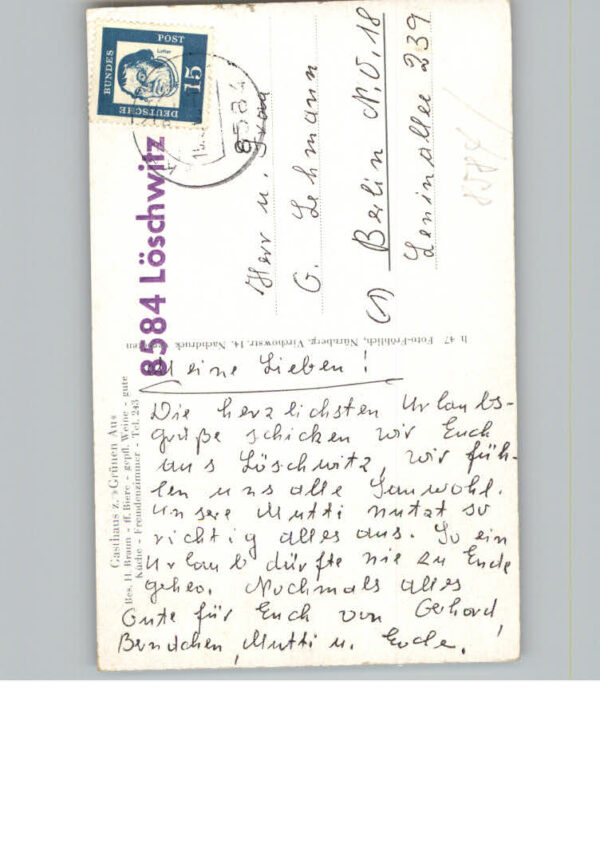 DEUTSCHE
BUNDES
POST
15
Luther
8584
8584 Löschwitz
Herr u. Frau
G. Lehmann
(1) Berlin N.O. 18
Leninallee 239
8584
Foto-Fröhlich, Nürnberg, Virchowstr. 14, Nachdruck
Gasthaus z. »Grünen Au«
Bes. H. Braun - ff. Biere - gepfl. Weine - gute
Küche - Fremdenzimmer - Tel. 243
Meine Lieben!
Die herzlichsten Urlaubs-
grüße schicken wir Euch
aus Löschwitz, wir füh-
len uns alle Sauwohl.
Unsere Mutti nutzt so
richtig alles aus. So ein
Urlaub dürfte nie zu Ende
gehen. Nochmals alles
Gute für Euch von Gerhard,
Mutti u.